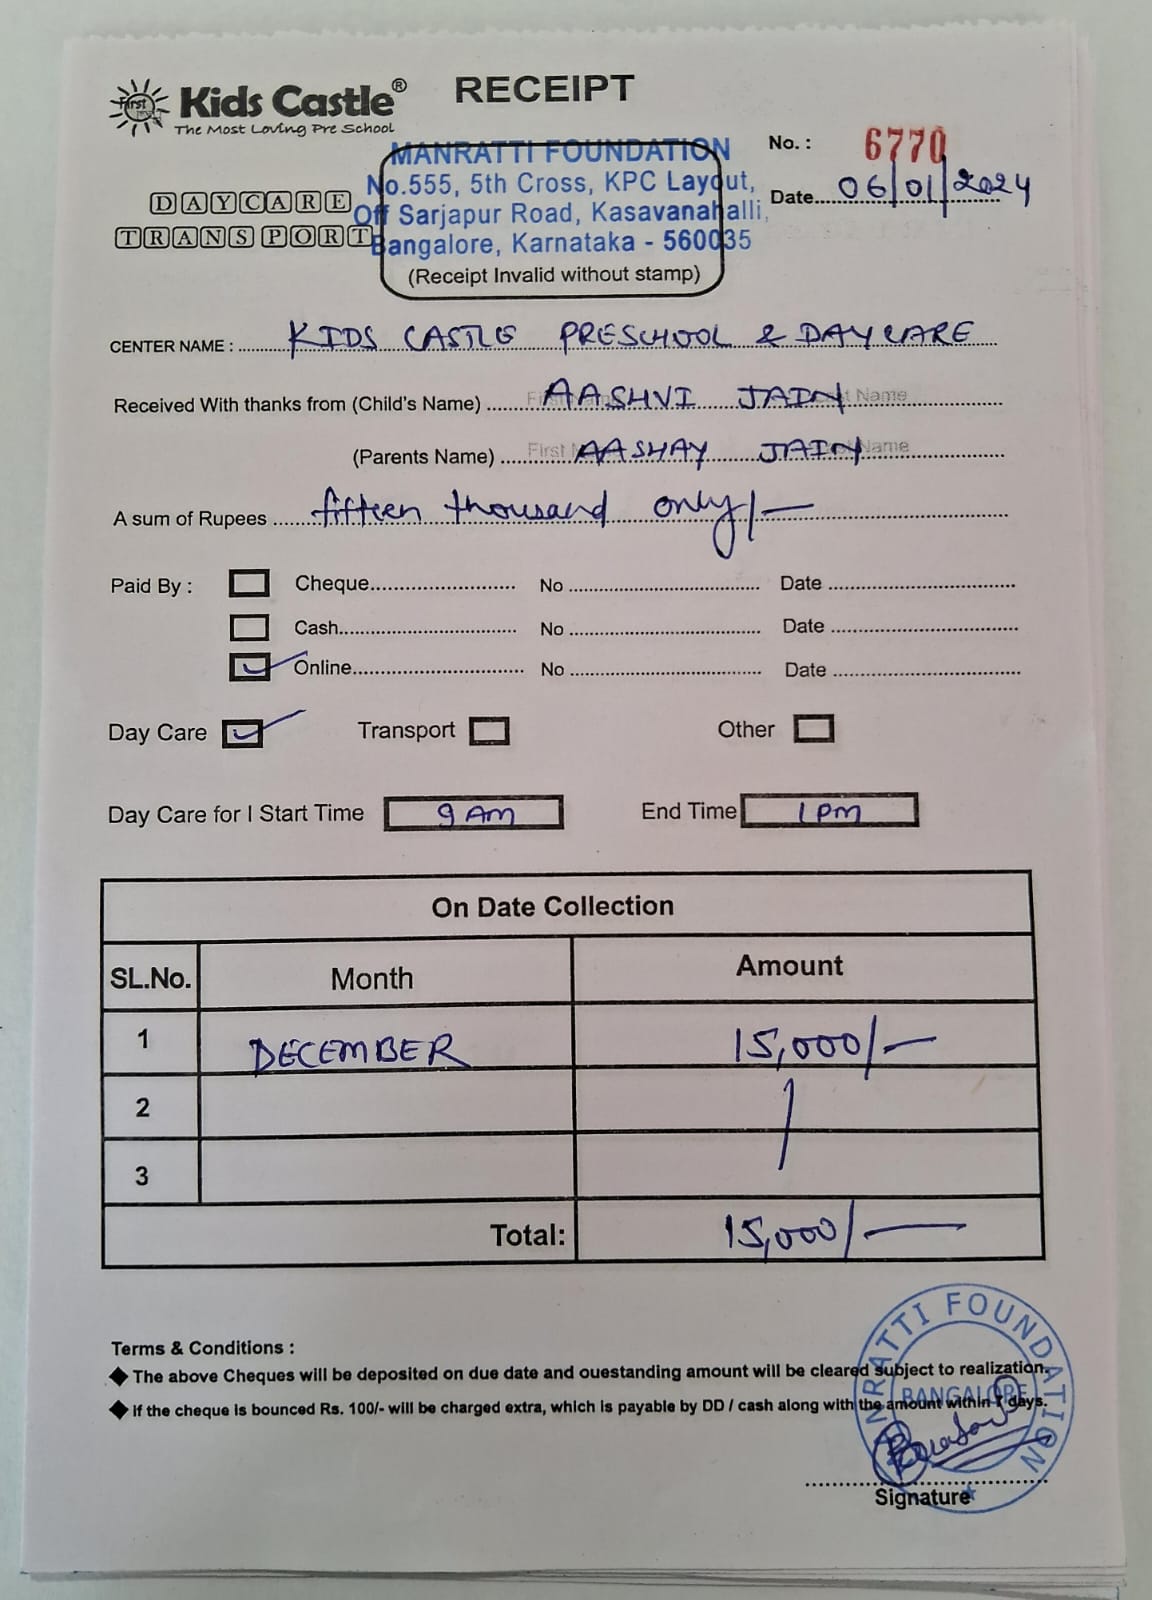 First
Kids Castle® RECEIPT
The Most Loving Pre School
MANRATTI FOUNDATION
No.555, 5th Cross, KPC Layout,
Off Sarjapur Road, Kasavanahalli,
Bangalore, Karnataka - 560035
(Receipt Invalid without stamp)
No. : 6770
Date 06/01/2024
DAYCARE
TRANSPORT
CENTER NAME : KIDS CASTLE PRESCHOOL & DAYCARE
Received With thanks from (Child's Name) AASHVI JAIN
(Parents Name) First Name AASHAY JAIN Last Name
A sum of Rupees fifteen thousand only/-
Paid By : Cheque No Date
Cash No Date
Online No Date
Day Care Transport Other
Day Care for I Start Time 9 AM End Time 1 PM
On Date Collection
SL.No. Month Amount
1 DECEMBER 15,000/-
2
3
Total: 15,000/-
Terms & Conditions :
The above Cheques will be deposited on due date and ouestanding amount will be cleared subject to realization.
If the cheque is bounced Rs. 100/- will be charged extra, which is payable by DD / cash along with the amount within 7 days.
MANRATTI FOUNDATION
BANGALORE
Signature